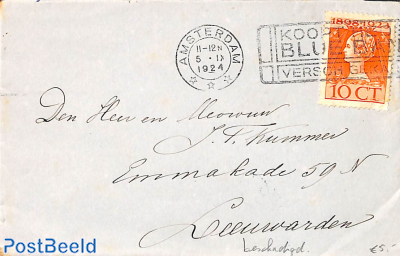 AMSTERDAM
11-12 N
5 · IX
1924
KOOPT
BLUE BAND
VERSCH
1898-1923
10 CT
Den Heer en Mevrouw
J. V. Kummer
Emmakade 59 N
Leeuwarden
beschadigd.
€5.-
PostBeeld